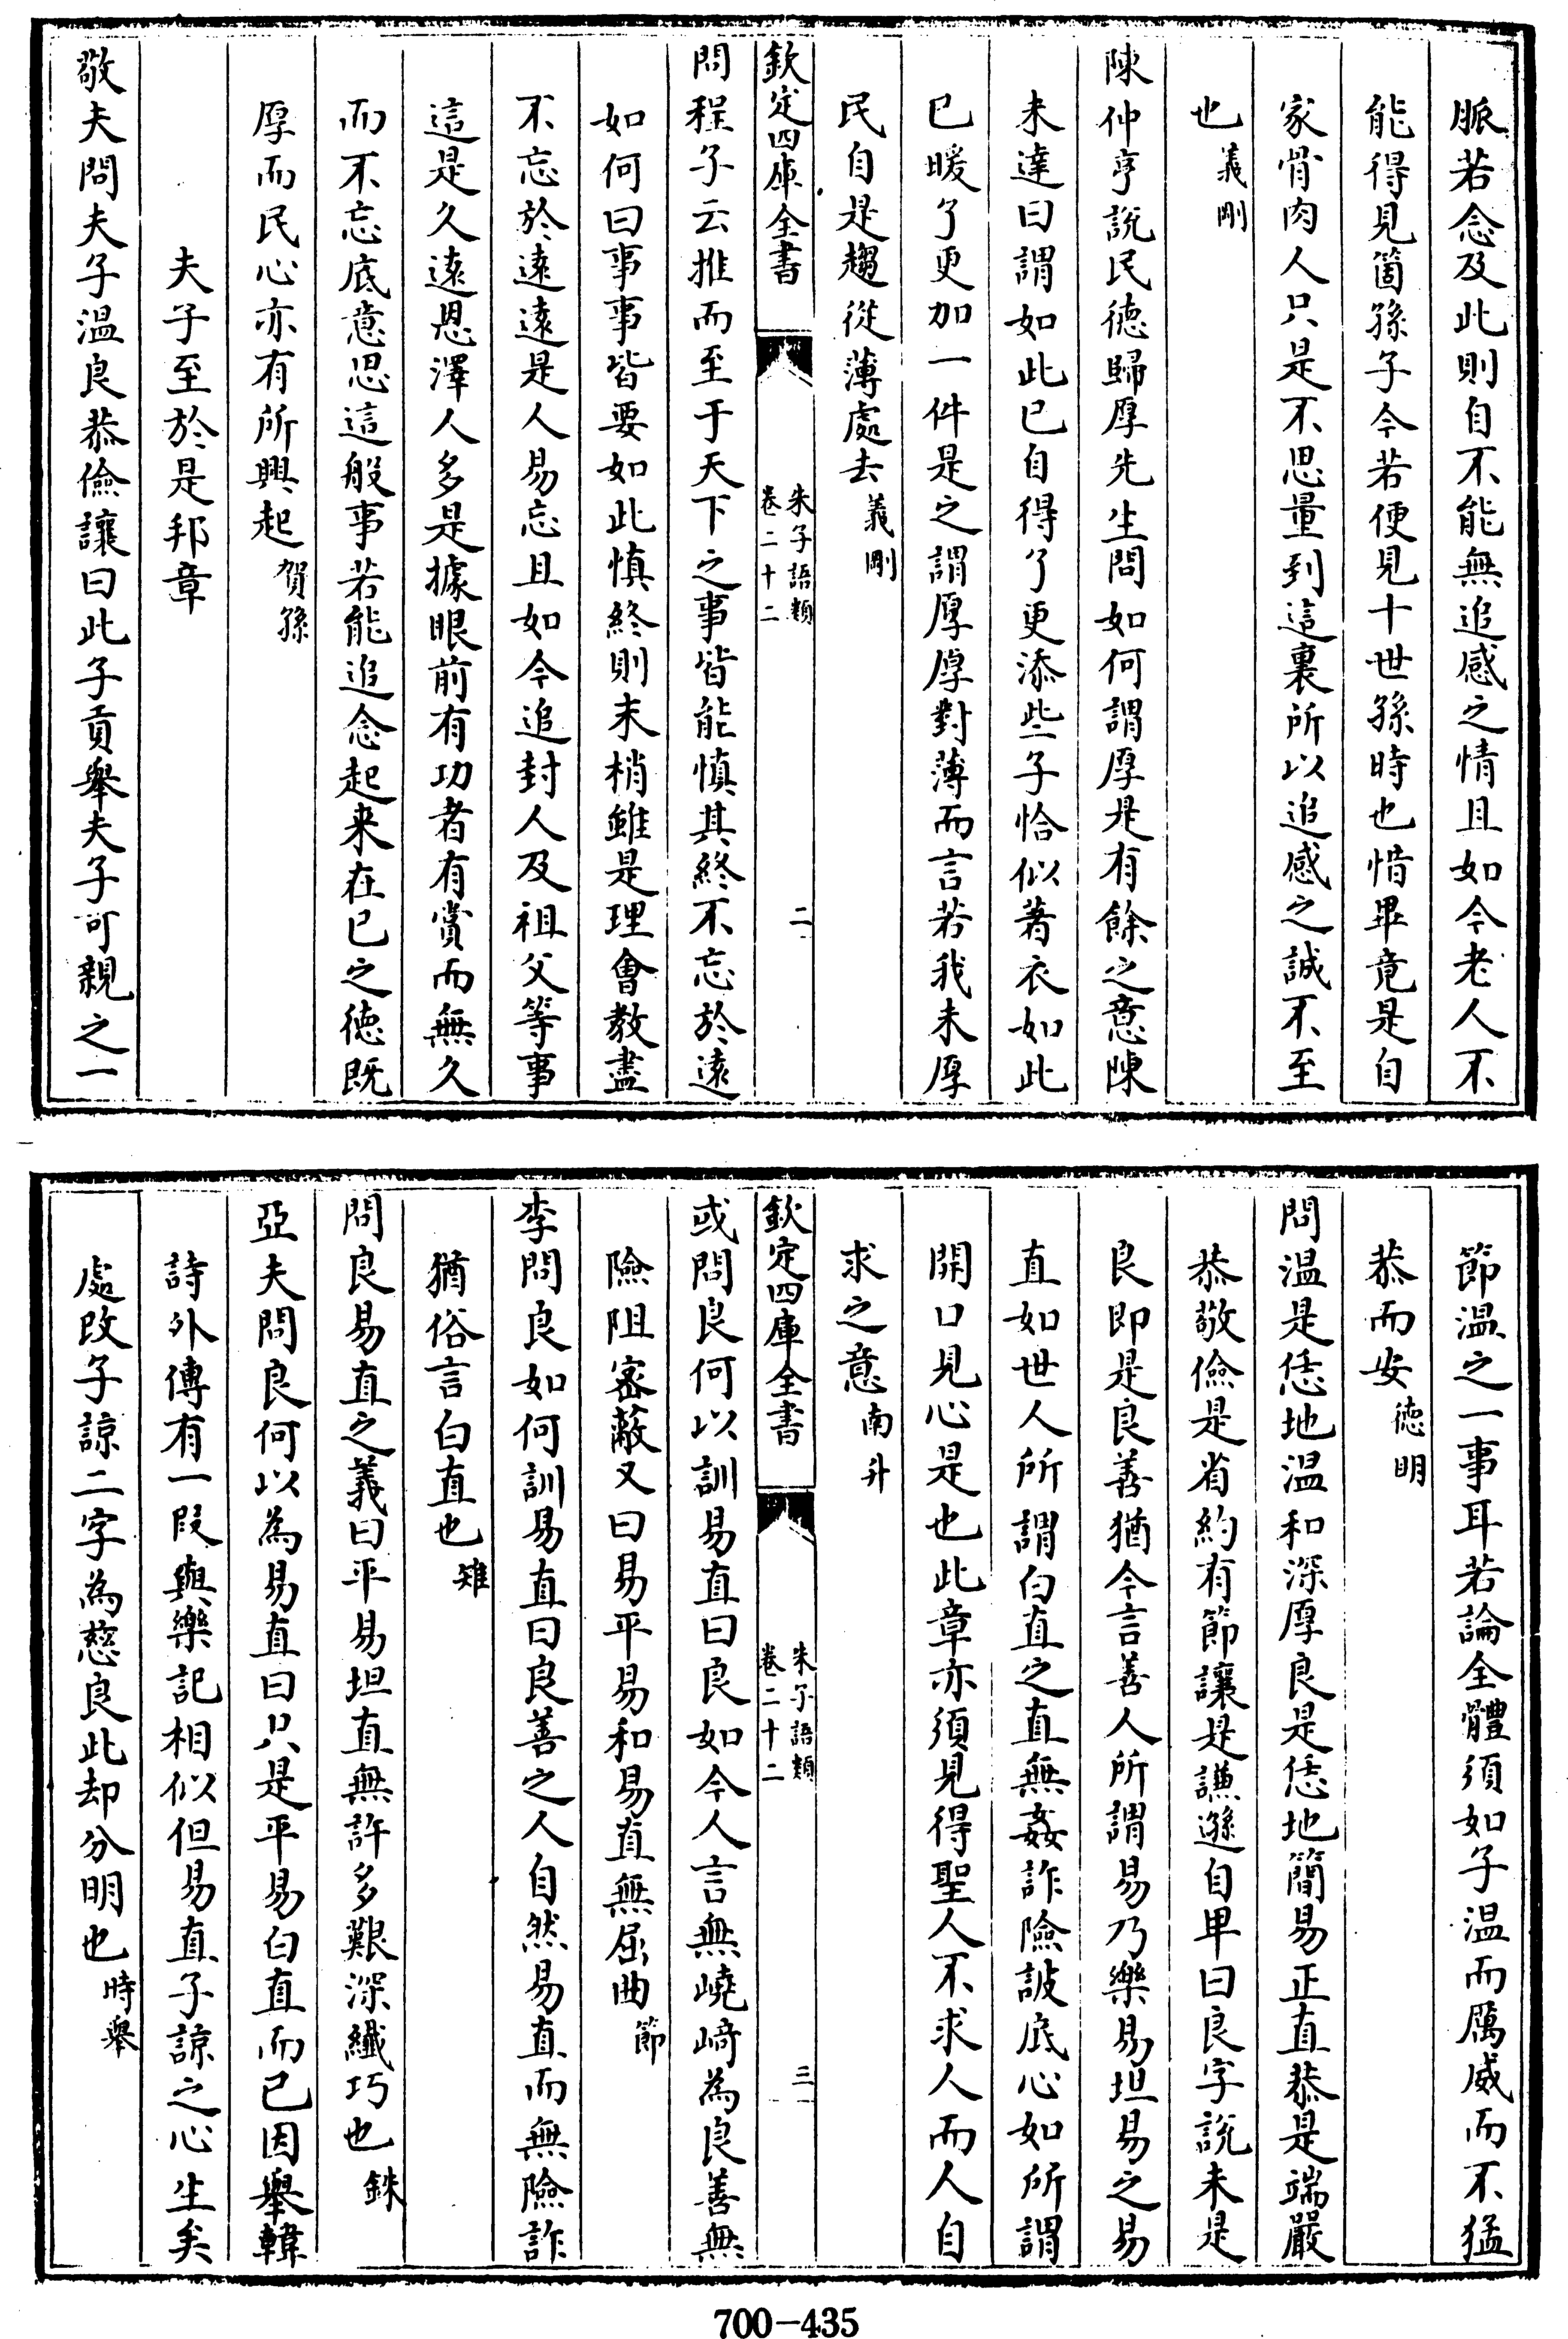 脈若念及此則自不能無追感之情且如今老人不
能得見箇孫子今若便見十世孫時也惜畢竟是自
家骨肉人只是不思量到這裏所以追感之誠不至
也義剛
陳仲亨說民徳歸厚先生問如何謂厚是有餘之意陳
未達曰謂如此已自得了更添些子恰似著衣如此
已暖了更加一件是之謂厚厚對薄而言若我未厚
民自是趨從薄處去義剛
欽定四庫全書
朱子語類
卷二十二
二
問程子云推而至于天下之事皆能慎其終不忘於遠
如何曰事事皆要如此慎終則末梢雖是理會教盡
不忘於遠遠是人易忘且如今追封人及祖父等事
這是久遠恩澤人多是據眼前有功者有賞而無久
而不忘底意思這般事若能追念起来在已之徳既
厚而民心亦有所興起賀孫
夫子至於是邦章
敬夫問夫子温良恭儉讓曰此子貢舉夫子可親之一
節温之一事耳若論全體須如子温而厲威而不猛
恭而安徳明
問温是恁地温和深厚良是恁地簡易正直恭是端嚴
恭敬儉是省約有節讓是謙遜自卑曰良字說未是
良即是良善猶今言善人所謂易乃樂易坦易之易
直如世人所謂白直之直無姦詐險詖底心如所謂
開口見心是也此章亦須見得聖人不求人而人自
求之意南升
欽定四庫全書
朱子語類
卷二十二
三
或問良何以訓易直曰良如今人言無嶢﨑為良善無
險阻宻蔽又曰易平易和易直無屈曲節
李問良如何訓易直曰良善之人自然易直而無險詐
猶俗言白直也雉
問良易直之義曰平易坦直無許多艱深纖巧也銖
亞夫問良何以為易直曰只是平易白直而已因舉韓
詩外傳有一段與樂記相似但易直子諒之心生矣
處改子諒二字為慈良此却分明也時舉
700-435